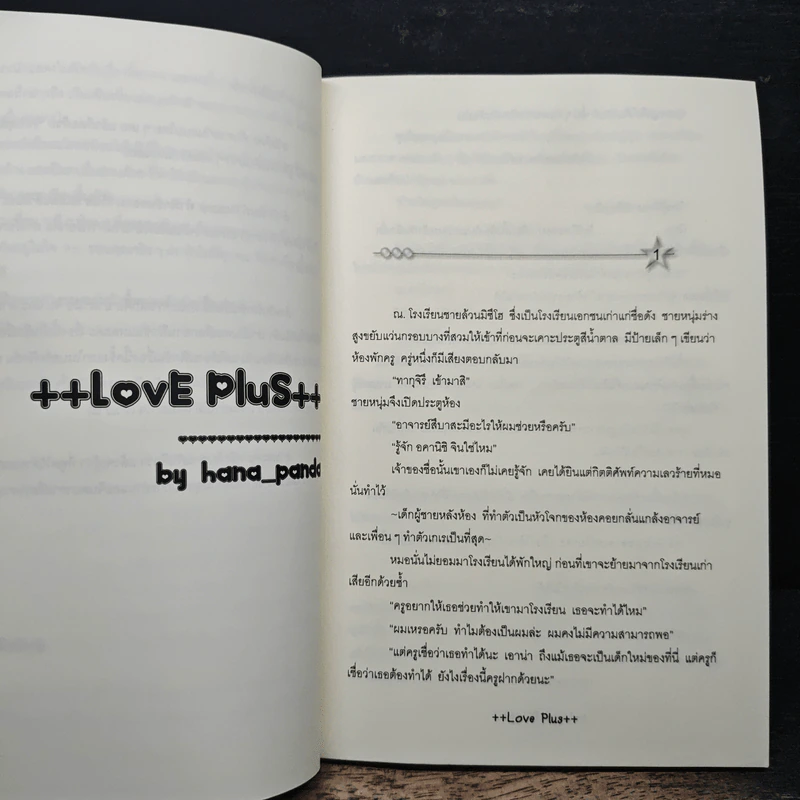 ++LovE PluS++
by hana_panda
1
ณ. โรงเรียนชายล้วนมิซึโฮ ซึ่งเป็นโรงเรียนเอกชนเก่าแก่ชื่อดัง ชายหนุ่มร่าง
สูงขยับแว่นกรอบบางที่สวมให้เข้าที่ก่อนจะเคาะประตูสีน้ำตาล มีป้ายเล็ก ๆ เขียนว่า
ห้องพักครู ครู่หนึ่งก็มีเสียงตอบกลับมา
"ทากุจิรึ เข้ามาสิ"
ชายหนุ่มจึงเปิดประตูห้อง
"อาจารย์สึบาสะมีอะไรให้ผมช่วยหรือครับ"
"รู้จัก อคานิชิ จินใช่ไหม"
เจ้าของชื่อนั้นเขาเองก็ไม่เคยรู้จัก เคยได้ยินแต่กิตติศัพท์ความเลวร้ายที่หมอ
นั่นทำไว้
~เด็กผู้ชายหลังห้อง ที่ทำตัวเป็นหัวโจกของห้องคอยกลั่นแกล้งอาจารย์
และเพื่อน ๆ ทำตัวเกเรเป็นที่สุด~
หมอนั่นไม่ยอมมาโรงเรียนได้พักใหญ่ ก่อนที่เขาจะย้ายมาจากโรงเรียนเก่า
เสียอีกด้วยซ้ำ
"ครูอยากให้เธอช่วยทำให้เขามาโรงเรียน เธอจะทำได้ไหม"
"ผมเหรอครับ ทำไมต้องเป็นผมล่ะ ผมคงไม่มีความสามารถพอ"
"แต่ครูเชื่อว่าเธอทำได้นะ เอาน่า ถึงแม้เธอจะเป็นเด็กใหม่ของที่นี่ แต่ครูก็
เชื่อว่าเธอต้องทำได้ ยังไงเรื่องนี้ครูฝากด้วยนะ"
++Love Plus++